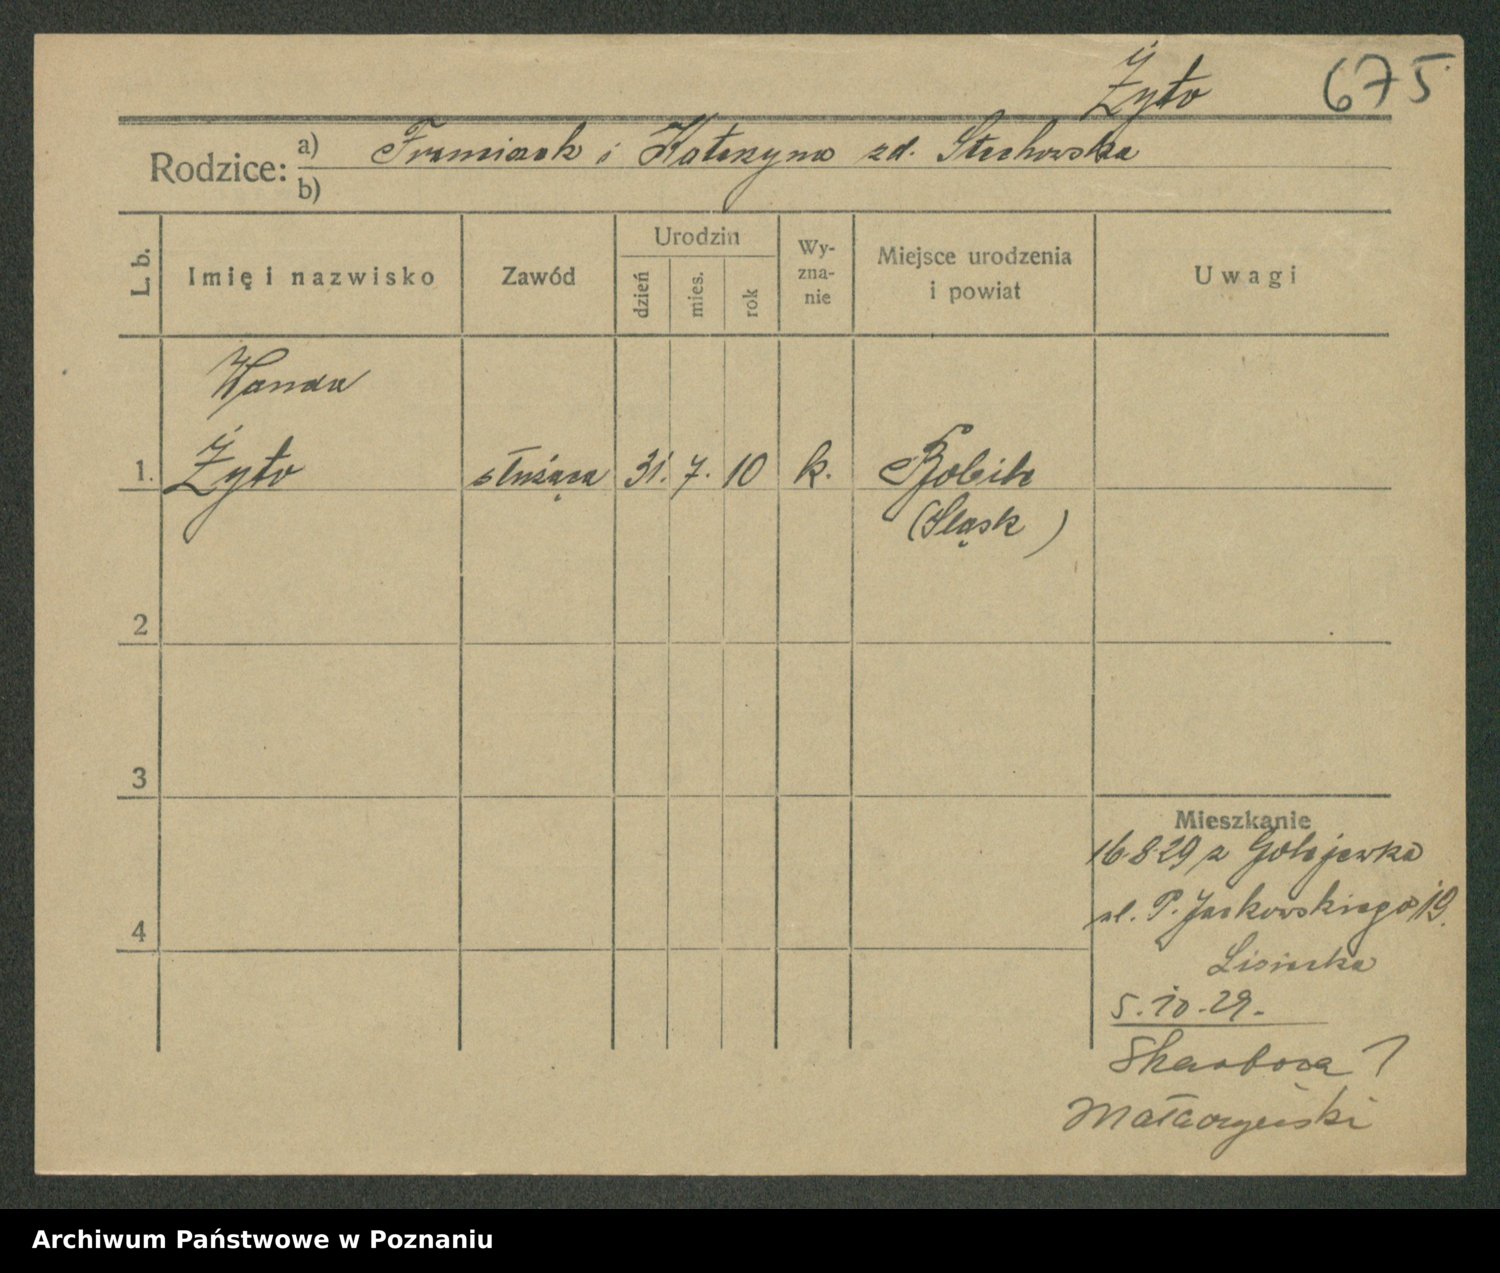 Żyto 675
Rodzice: a) Franciszek i Katarzyna zd. Stachowska
b)
L. b. Imię i nazwisko Zawód Urodzin dzień mies. rok Wy-zna-nie Miejsce urodzenia i powiat Uwagi
Wanda
1. Żyto służąca 31. 7. 10 k.
(Śląsk)
2
3
Mieszkanie
16.8.29 z Golejewka
4 ul. P. Jackowskiego 19.
Lisiecka
5.10.29.
Skarbowa 7
Małaczyński
Archiwum Państwowe w Poznaniu